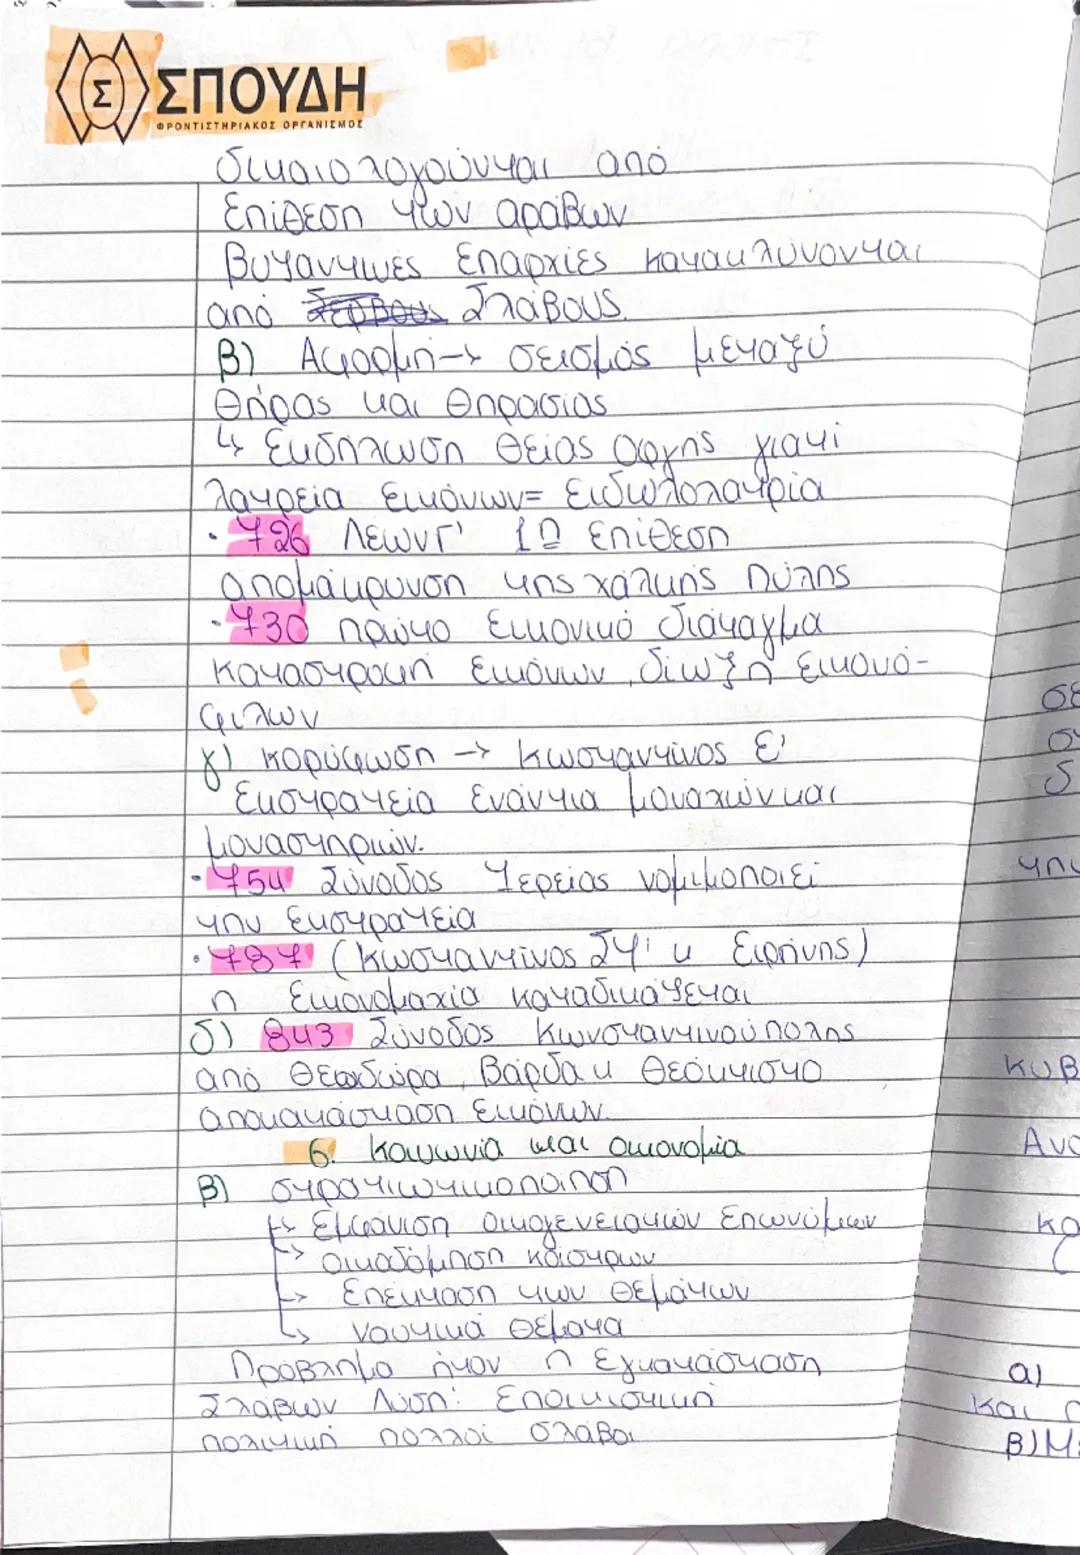 Σ ΣΠΟΥΔΗ
ΦΡΟΝΤΙΣΤΗΡΙΑΚΟΣ ΟΡΓΑΝΙΣΜΟΣ
δικαιολογούνται από
Επίθεση των αράβων
Βυζαντινές Επαρχίες κατακλύνονται
από Σλάβους.
Β) Αφορμή → σεισμός μεταξύ
Θήρας και Θηρασίας
↳ Εκδήλωση Θείας Οργής γιατί
λατρεία Εικόνων = Ειδωλολατρία
· 726 Λέων Γ' 1η Επίθεση
απομάκρυνση της χάλκης πύλης
· 730 πρώτο Εικονικό διάταγμα
Καταστροφή Εικόνων, δίωξη εικονό-
φιλων
γ) κορύφωση → Κωσταντίνος Ε'
Εκστρατεία Ενάντια μοναχών και
μοναστηριών.
· 754 Σύνοδος Ιερείας νομιμοποιεί
την Εκστρατεία
· 787 (Κωσταντίνος ΣΤ' κ Ειρήνης)
η Εικονομαχία καταδικάζεται
δ) 843 Σύνοδος Κωνσταντινούπολης
από Θεοδώρα, Βάρδα κ Θεόκτιστο
αποκατάσταση Εικόνων.
6. Κοινωνία και οικονομία
Β) στρατιωτικοποίηση
↳ Εμφάνιση οικογενειατών Επωνύμων
→ Οικοδόμηση κάστρων
→ Επέκταση των Θεμάτων
↳ ναυτικά Θέματα
Πρόβλημα ήταν η Εγκατάσταση
Σλάβων Λύση: Εποικιστική
πολιτική πολλοί σλάβοι
α)
και
β) Με